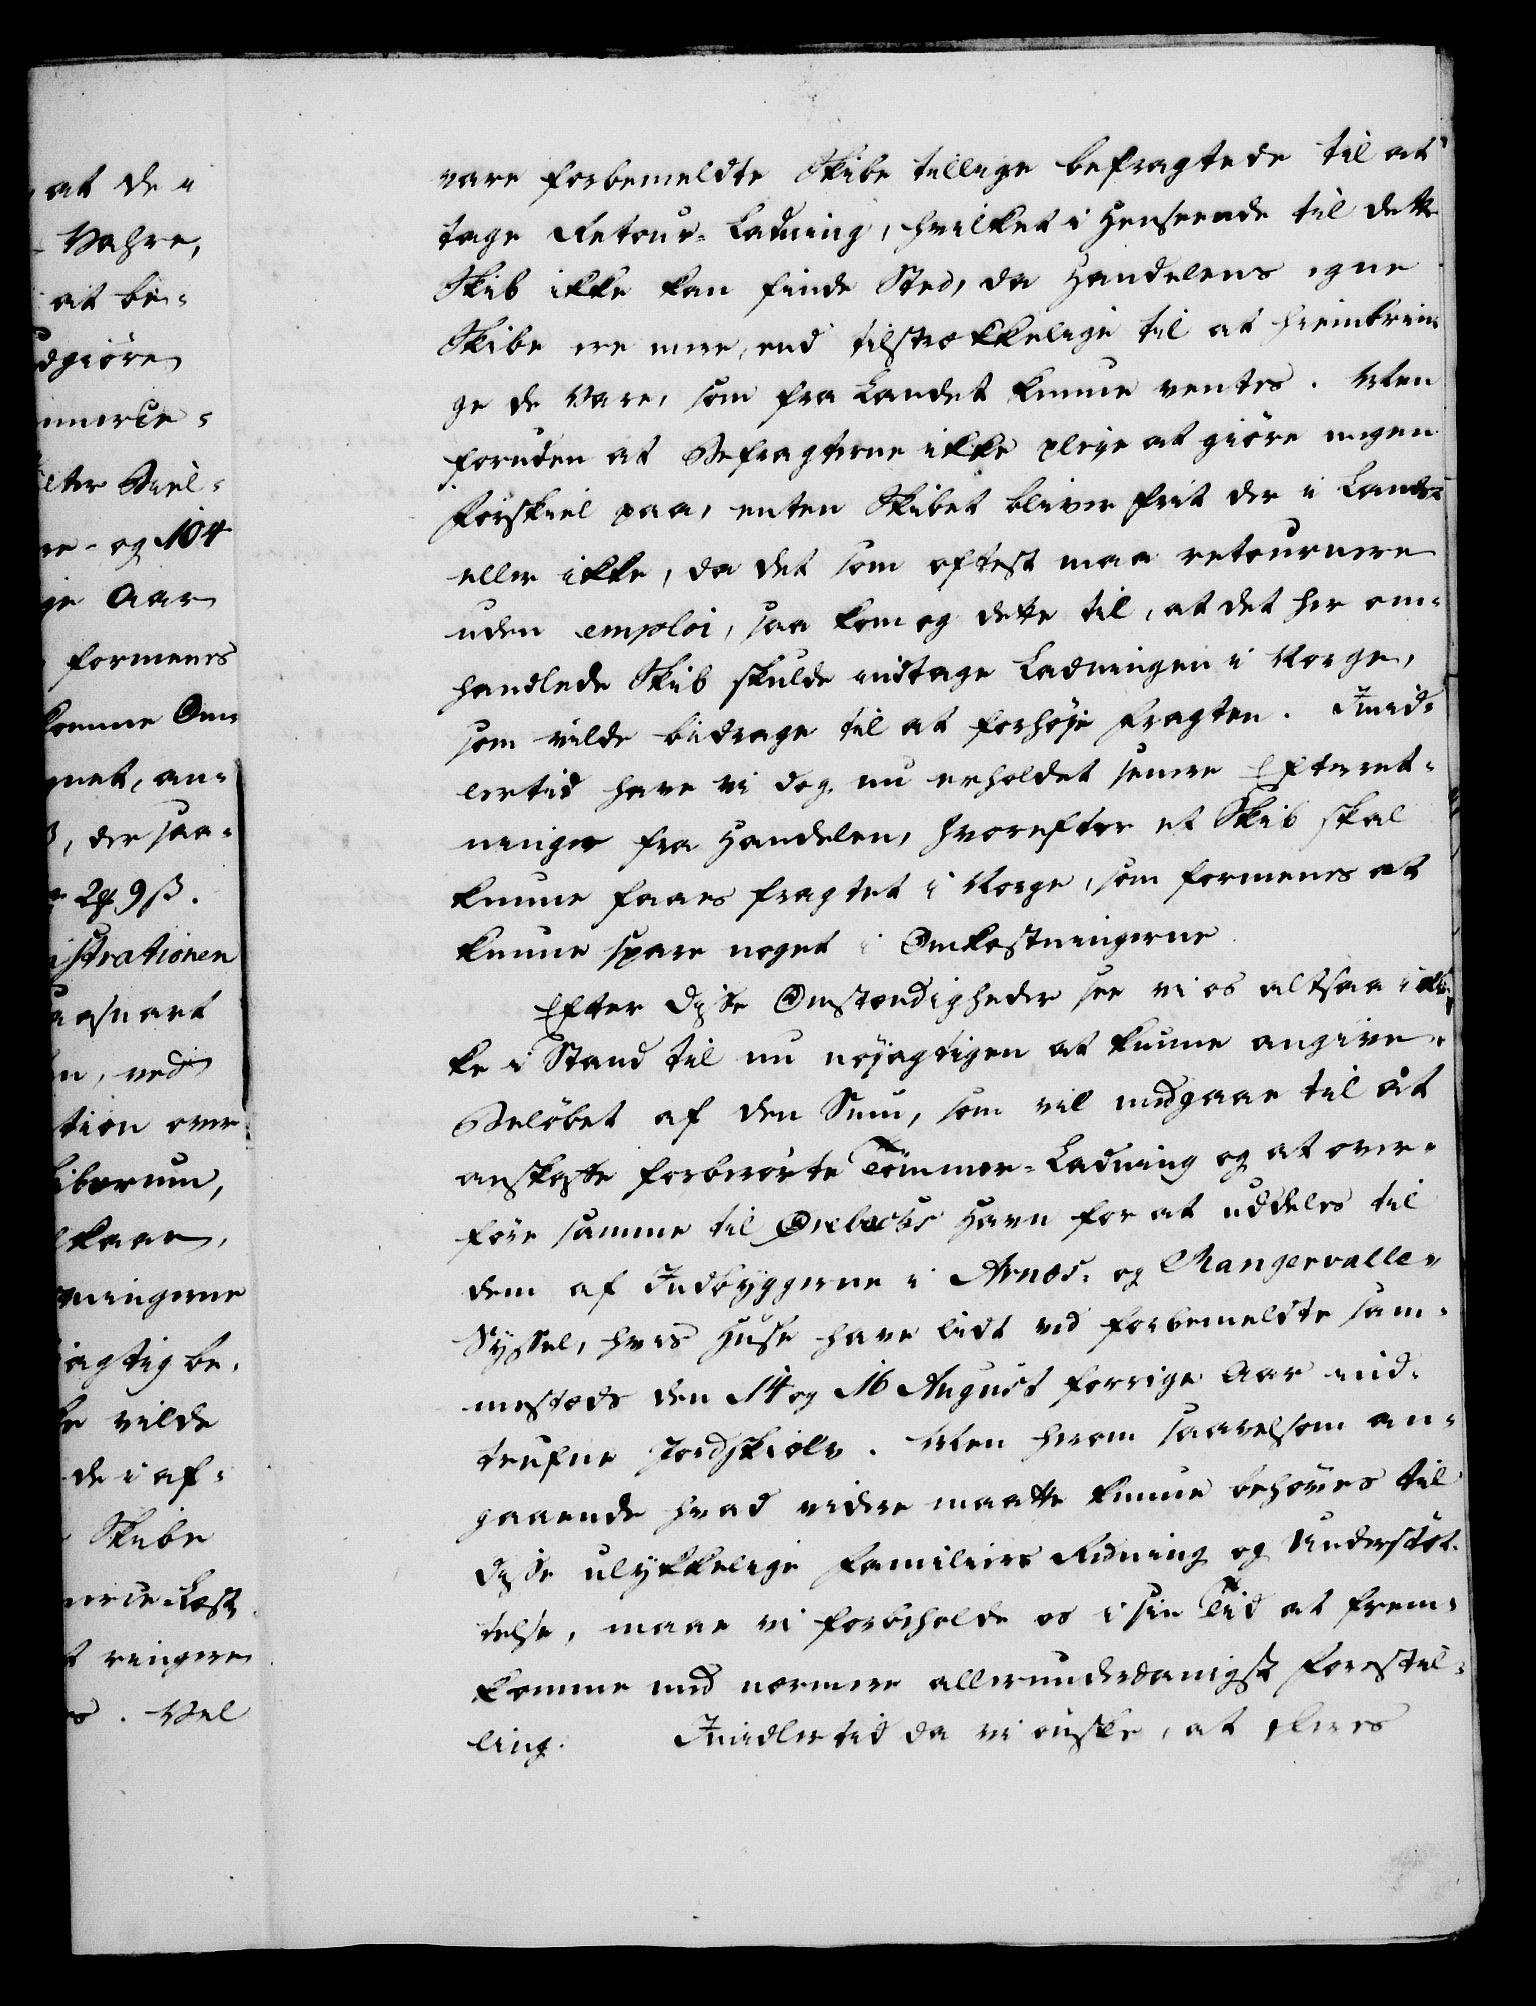 at de i
Vahre,
at be-
dgiøre
mmerce-
lter Viel-
re- og 104
ge Aar
formenes
komme Om-
met, an-
ß, der saa-
2 ꝶ 9 ß.
istrationen
aasnart
n, ved
tion over
liborum,
lkaar,
ningerne
iagtig be-
ke vilde
de i af-
Skibe
merce-Læst
t ringere
s. Vel
vare forbemeldte Skibe tillige befragtede til at
tage Retour-Ladning, hvilket i Henseende til dette
Skib ikke kan finde Sted, da Handelens egne
Skibe ere mere, end tilstrækkelige til at hiembrin-
ge de Vare, som fra Landet kunne ventes. Men
foruden at Befragterne ikke pleje at giöre nogen
forskiel paa, enten Skibet bliver frit der i Landet
eller ikke, da det som oftest maa retournere
uden emploi, saa kom og dette til, at det her om-
handlede Skib skulde indtage Ladningen i Norge,
som vilde bidrage til at forhöje fragten. Imid-
lertid have vi dog nu erholdet senere Efterret-
ninger fra Handelen, hvorefter et Skib skal
kunne faaes fragtet i Norge, som formenes at
kunne spare noget i Omkostningerne.
Efter disse Omstændigheder see vi os altsaa ik-
ke i Stand til nu nöjagtigen at kunne angive
Belöbet af den Sum, som vil medgaae til at
anskaffe forberörte Tömmer-Ladning og at over-
före samme til Örebacks Havn for at uddeles til
dem af Indbyggerne i Arnæs- og Rangervalle-
Syssel, hvis Huse have lidt ved forbemeldte sam-
mestæds den 14 og 16 August forrige Aar ind-
trufne Jordskiælv. Men herom saavelsom an-
gaaende hvad videre maatte kunne behöves til
disse ulykkelige familiers Redning og Understöt-
telse, maae vi forbeholde os i sin Tid at frem-
komme med nærmere allerunderdanigst forestil-
ling. Imidlertid da vi önske, at deres